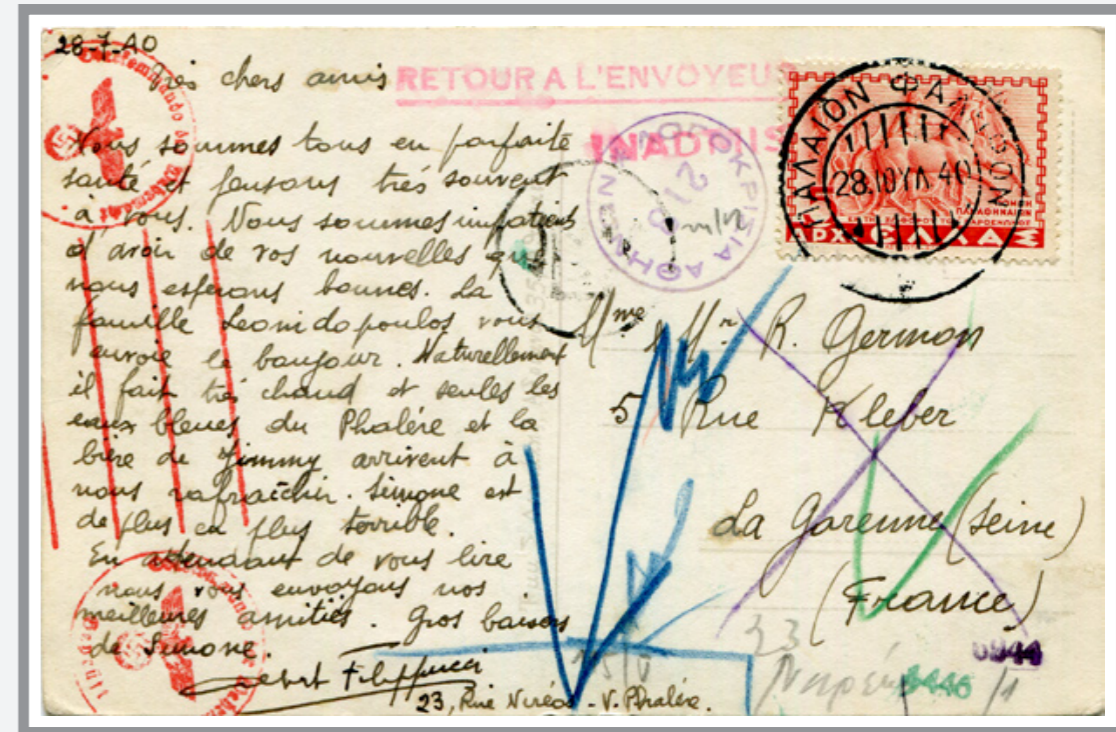 28-7-40
Très chers amis
Nous sommes tous en parfaite
santé et pensons très souvent
à vous. Nous sommes impatients
d'avoir de vos nouvelles que
nous esperons bonnes. La
famille Leonidopoulos vous
envoie le bonjour. Naturellement
il fait très chaud et seules les
eaux bleues du Phalère et la
bière de Jimmy arrivent à
nous rafraîchir. Simone est
de plus en plus terrible.
En attendant de vous lire
nous vous envoyons nos
meilleures amitiés. Gros baisers
de Simone.
Filippucci
23, Rue Niréos - V. Phalère.
RETOUR A L'ENVOYEUR
INADMIS
ΠΑΛΑΙΟΝ ΦΑΛΗΡΟΝ
28. ΙΟΥΛ 40
ΕΛΛΑΣ
ΛΟΓΟΚΡΙΣΙΑ ΑΘΗΝΩΝ
213
Mme & Mr. R. Germon
5 Rue Kleber
La Garenne (Seine)
(France)
23
0944